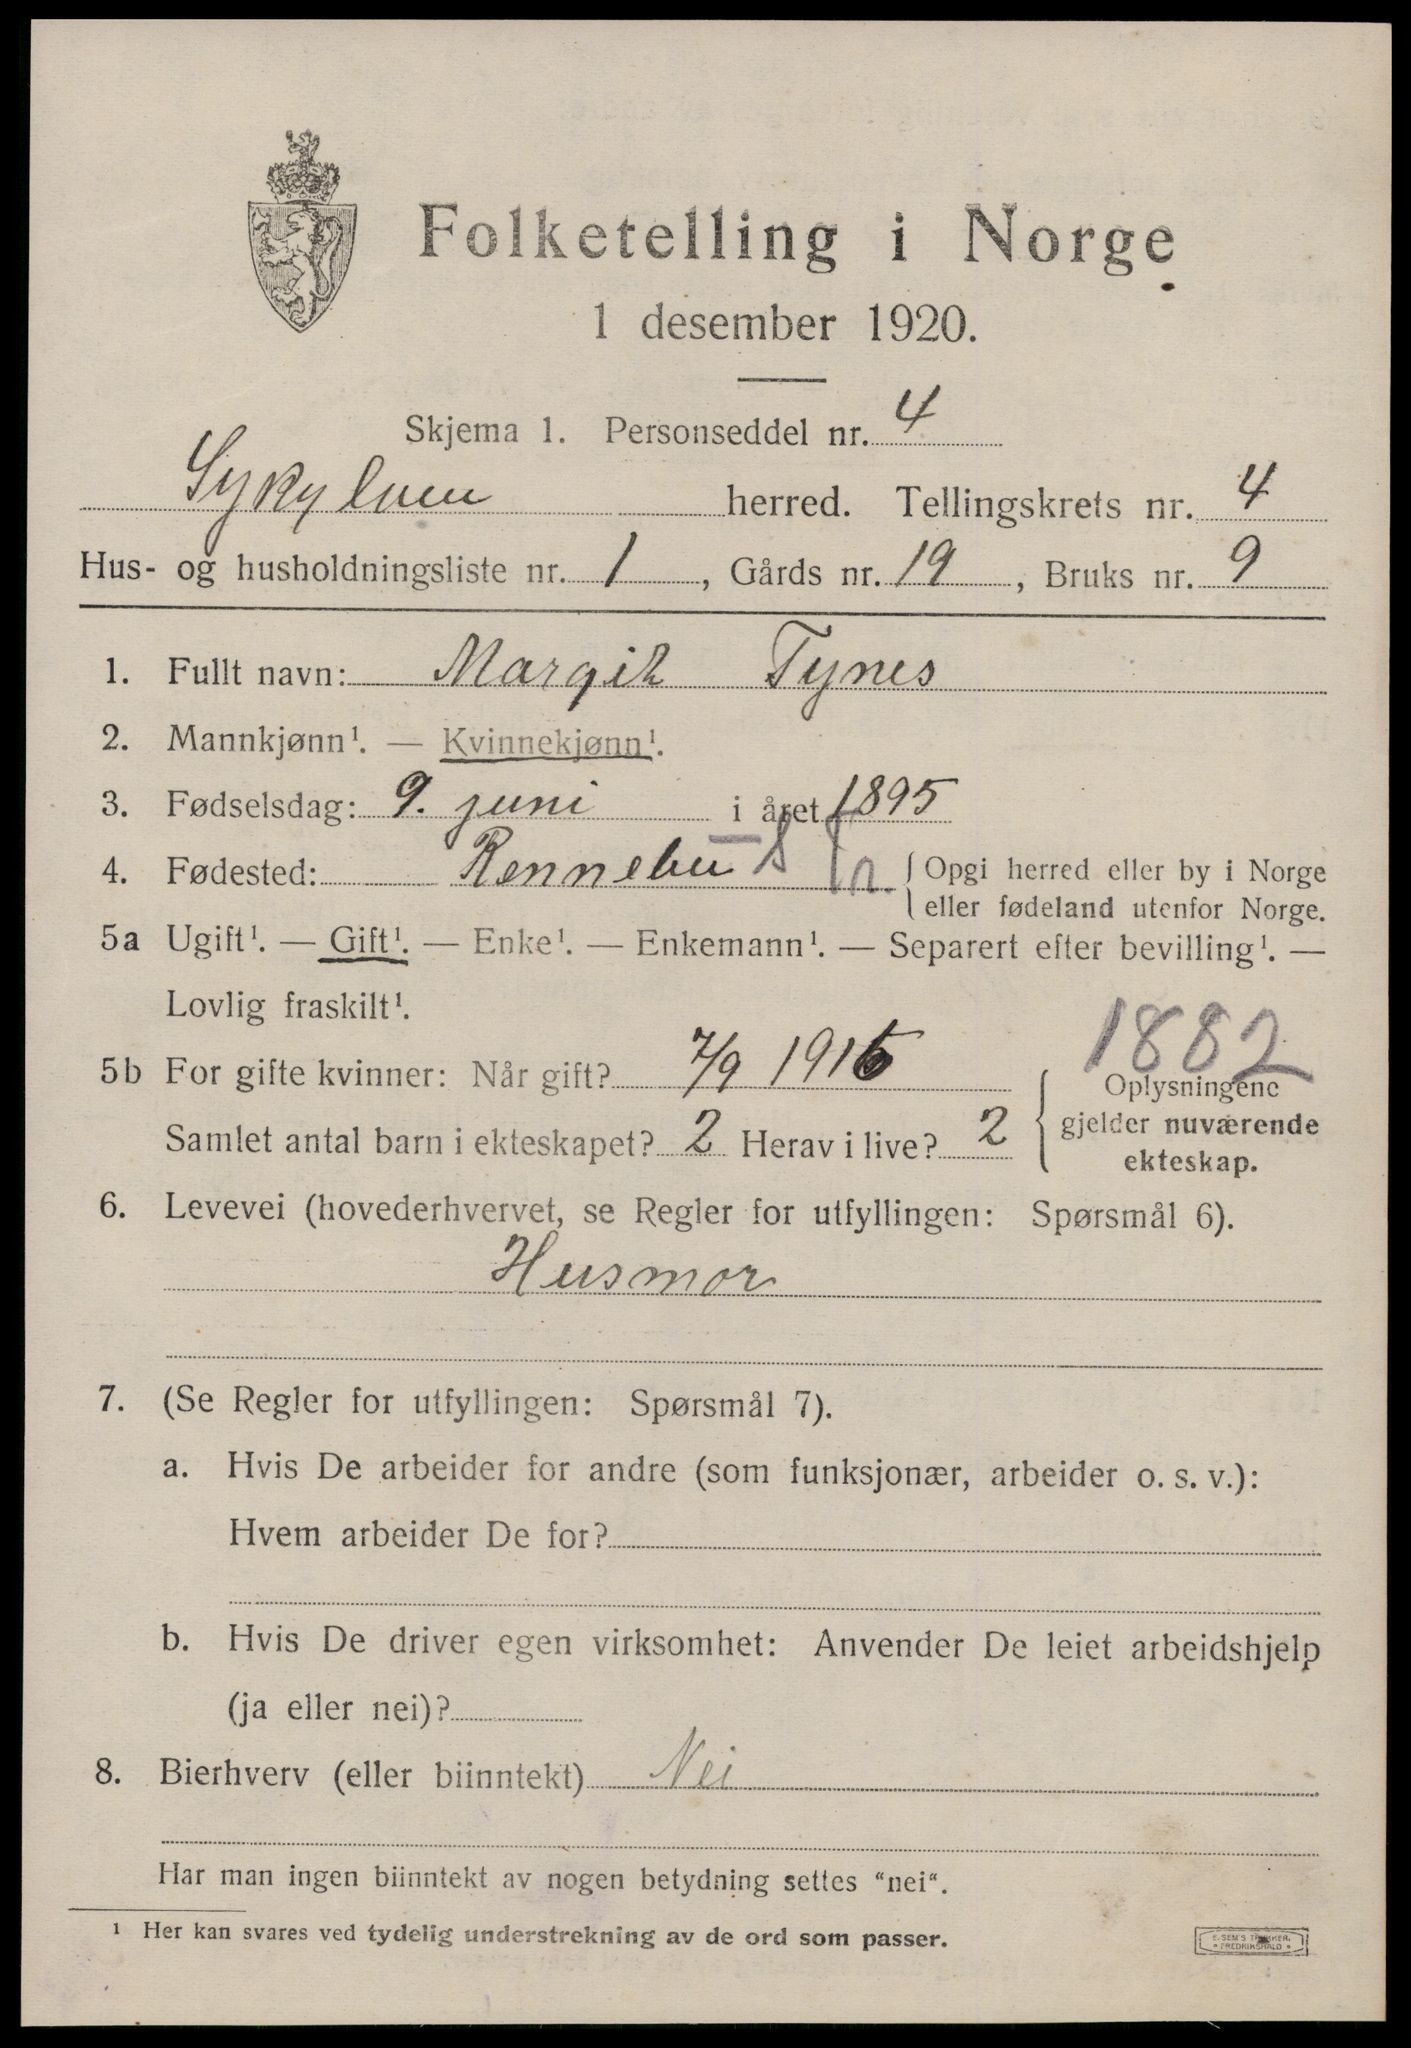 Folketelling i Norge
1 desember 1920.
Skjema 1. Personseddel nr. 4
Sykylven herred. Tellingskrets nr. 4
Hus- og husholdningsliste nr. 1, Gårds nr. 19, Bruks nr. 9
1. Fullt navn: Margit Tynes
2. Mannkjønn¹. — Kvinnekjønn¹.
3. Fødselsdag: 9. juni i året 1895
4. Fødested: Rennebu { Opgi herred eller by i Norge
eller fødeland utenfor Norge.
5a Ugift¹. — Gift¹. — Enke¹. — Enkemann¹. — Separert efter bevilling¹. —
Lovlig fraskilt¹.
1882
5b For gifte kvinner: Når gift? 7/9 1916
Samlet antal barn i ekteskapet? 2 Herav i live? 2
{ Oplysningene
gjelder nuværende
ekteskap.
6. Levevei (hovederhvervet, se Regler for utfyllingen: Spørsmål 6).
Husmor
7. (Se Regler for utfyllingen: Spørsmål 7).
a. Hvis De arbeider for andre (som funksjonær, arbeider o. s. v.):
Hvem arbeider De for?
b. Hvis De driver egen virksomhet: Anvender De leiet arbeidshjelp
(ja eller nei)?
8. Bierhverv (eller biinntekt) Nei
Har man ingen biinntekt av nogen betydning settes "nei".
¹ Her kan svares ved tydelig understrekning av de ord som passer.
E. SEM'S TRYKKERI,
• FREDRIKSHALD •